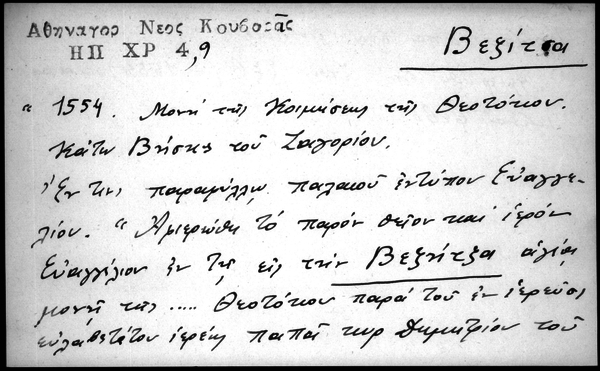 Αθηναγορ Νεος Κουβαρᾶς
ΗΠ ΧΡ 4,9
Βεξίτσα
" 1554. Μονή τῆς Κοιμήσεως τῆς Θεοτόκου.
Κάτω Βήσης τοῦ Ζαγορίου.
Ἐν τινι παραφύλλῳ παλαιοῦ ἐντύπου Εὐαγγε-
λίου. " Ἀφιερώθη τό παρόν θεῖον καί ἱερόν
Εὐαγγέλιον ἐν τῇ εἰς τήν Βεξήτζα ἁγίᾳ
μονῇ τῆς ..... Θεοτόκου παρά τοῦ ἐν ἱερεῦσι
εὐλαβεστάτου ἱερέως παπᾶ κυρ Δημητρίου τοῦ